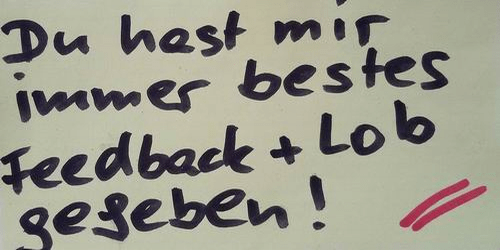 Du hast mir
immer bestes
Feedback + Lob
gegeben!